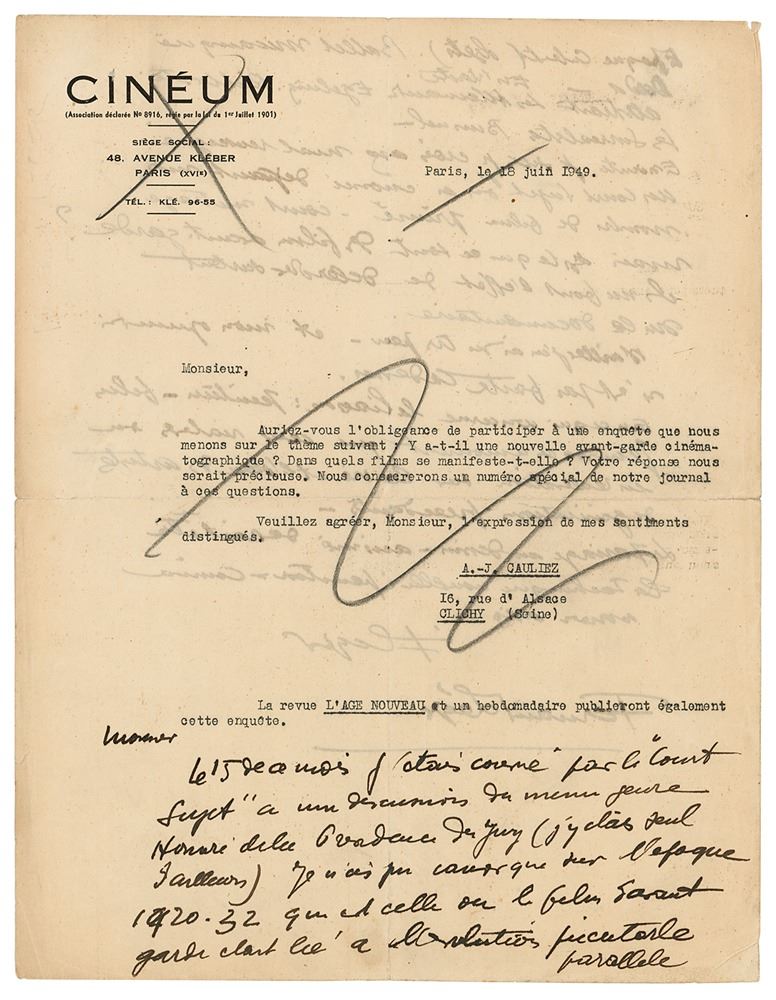 CINÉUM
(Association déclarée No 8916, régie par la loi du 1er Juillet 1901)
SIÈGE SOCIAL :
48, AVENUE KLÉBER
PARIS (XVIe)
TÉL. : KLÉ. 96-55
Paris, le 18 juin 1949.
Monsieur,
Auriez-vous l'obligeance de participer à une enquête que nous
menons sur le thème suivant : Y a-t-il une nouvelle avant-garde cinéma-
tographique ? Dans quels films se manifeste-t-elle ? Votre réponse nous
serait précieuse. Nous consacrerons un numéro spécial de notre journal
à ces questions.
Veuillez agréer, Monsieur, l'expression de mes sentiments
distingués.
A.-J. CAULIEZ
16, rue d'Alsace
CLICHY (Seine)
La revue L'AGE NOUVEAU et un hebdomadaire publieront également
cette enquête.
Monsieur
le 15 de ce mois j'étais par le "Court
Sujet" a une discussion du meme genre
Honoré de la du Jury (j'y étais seul
d'ailleurs) Je n'ai pu que sur l'epoque
1920-32 qui est celle ou le film d'avant
garde etait lié a l'evolution picturale
parallele